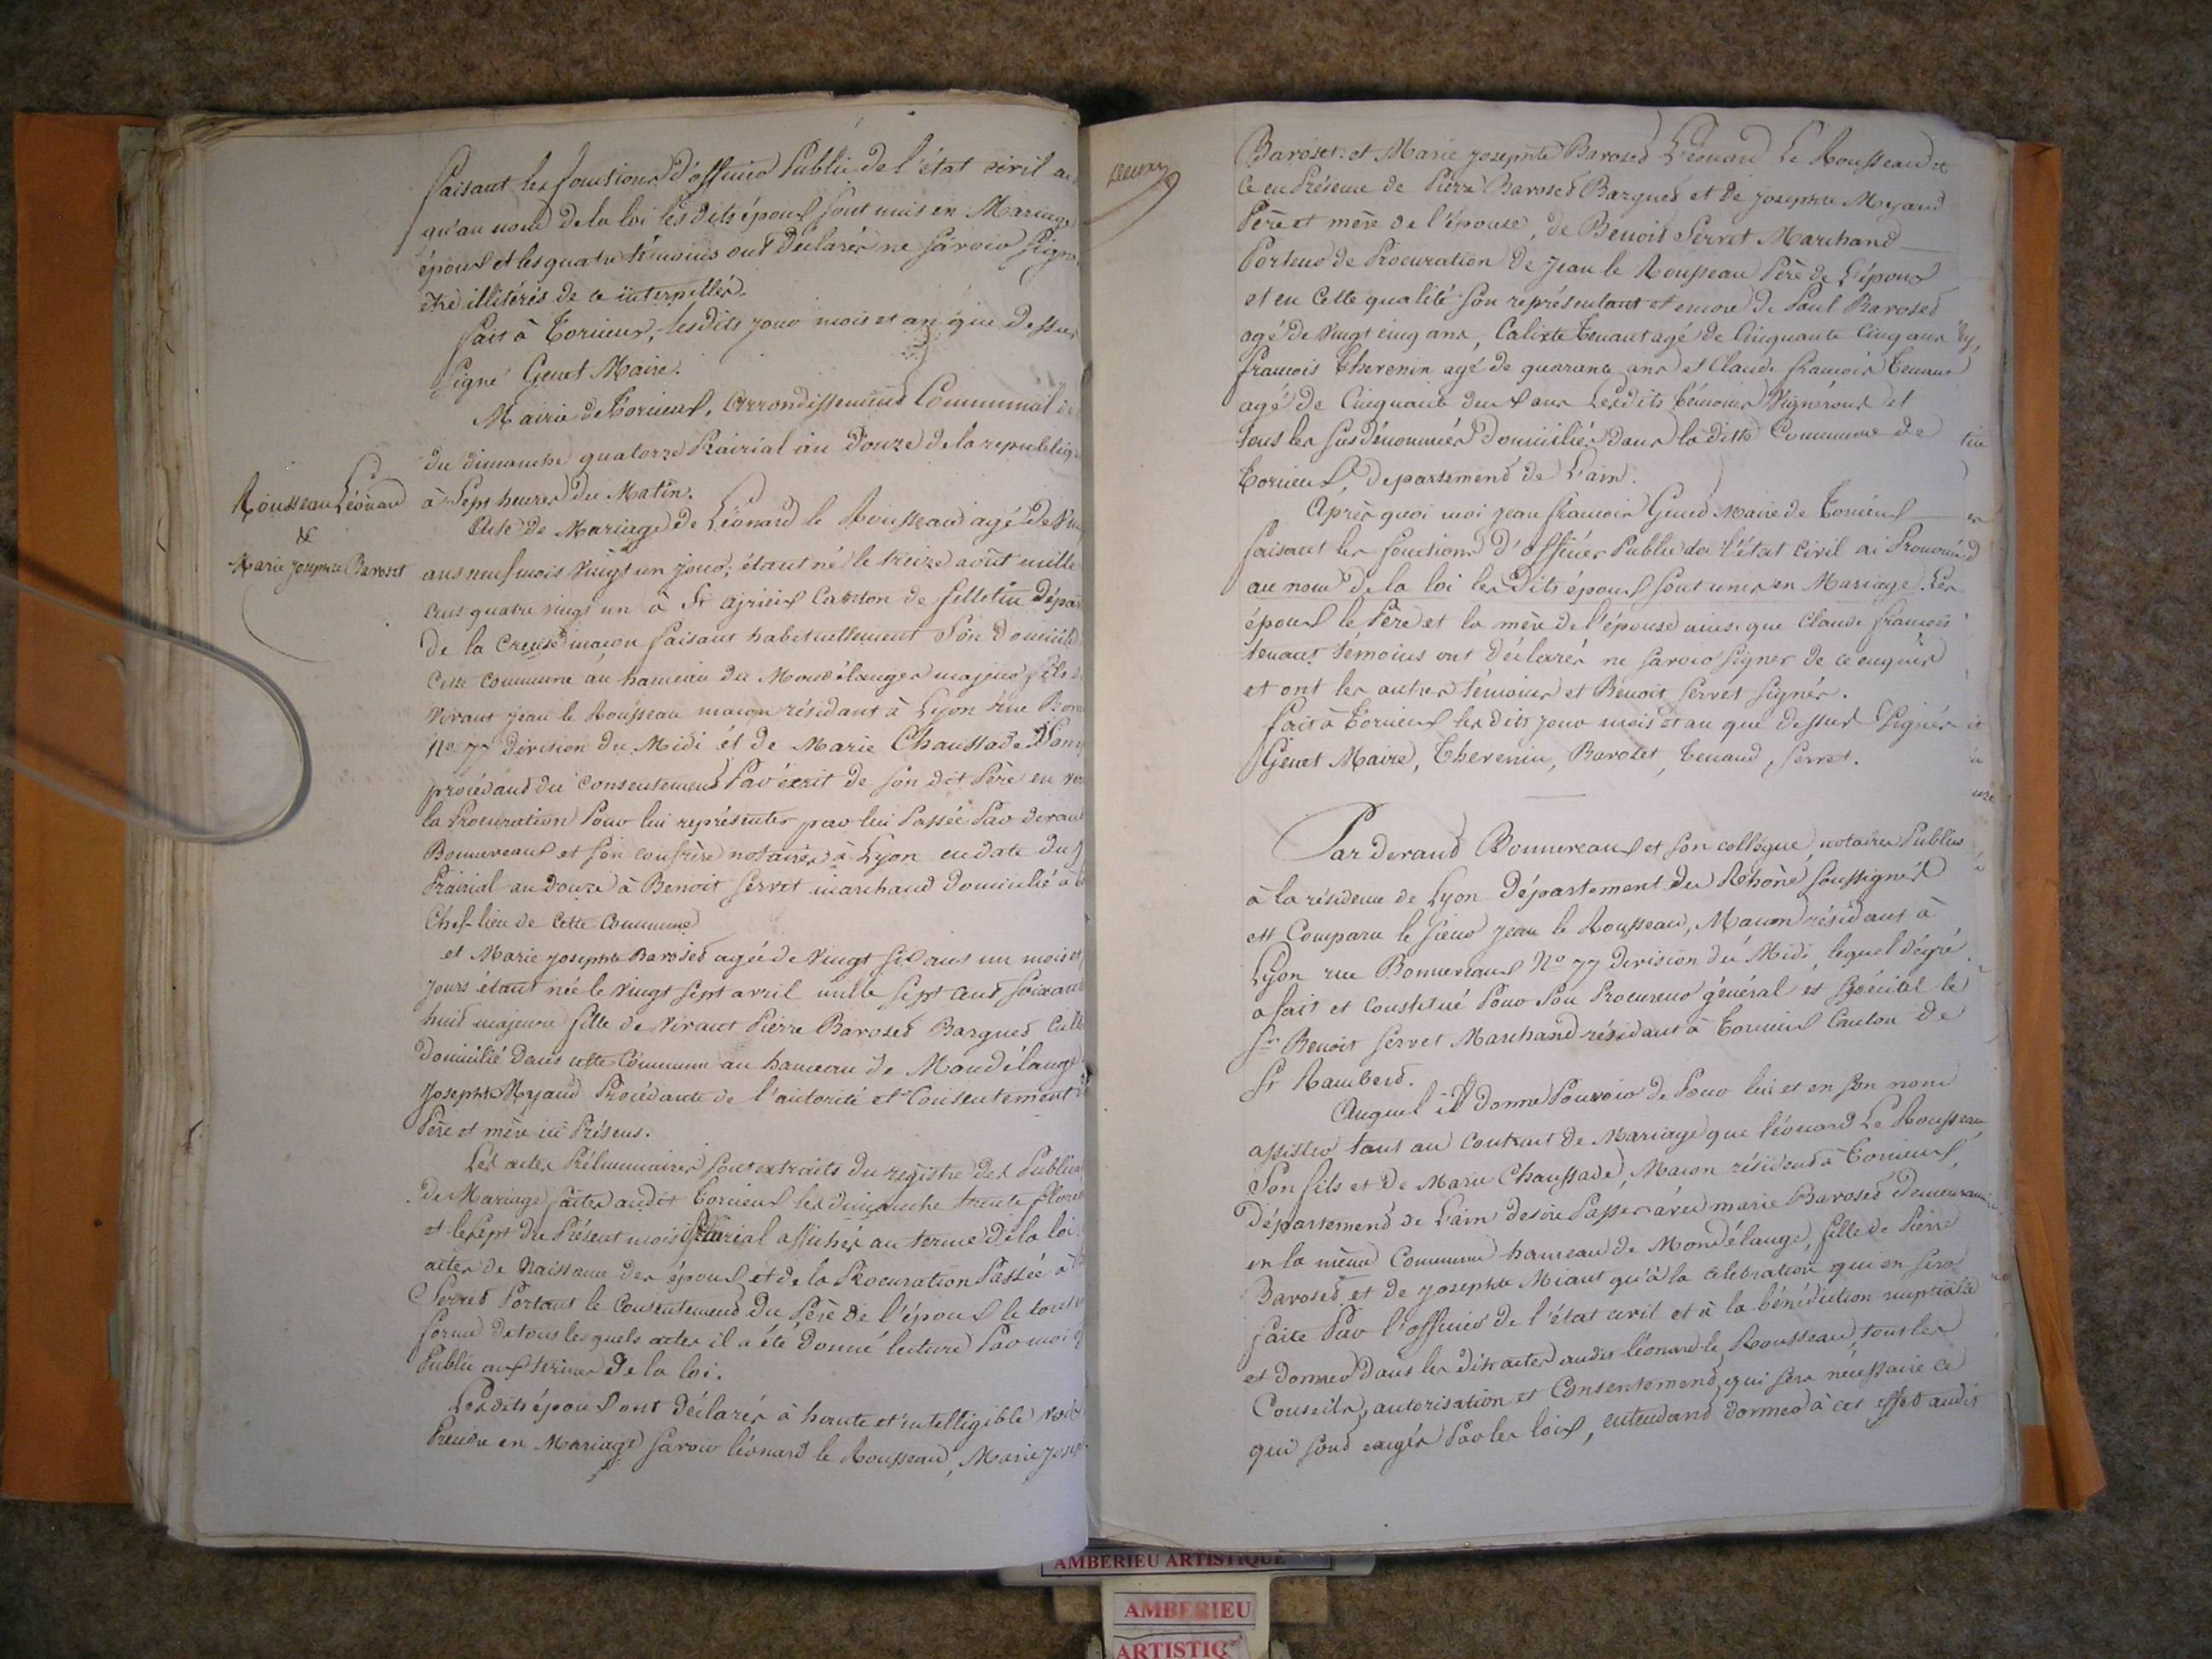 faisant les fonctions d'officier Public de l'état civil ai
qu'au nom de la loi les dits époux sont unis en Mariage
époux et les quatre témoins ont déclarés ne savoir signer
être illitérés de ce interpellés.
fait à Torcieux, lesdits jour mois et an que dessus
signé Genet Maire.
Mairie de Torcieux, Arrondissement Communal de
du dimanche quatorze Prairial an Douze de la republique
à Sept heures du Matin.
Rousseau Léonard
&
Marie Josephte Baroset
Acte de Mariage de Léonard le Rousseau agé de Vin
ans neuf mois Vingt un jour, étant né le treize août mille
cens quatre vingt un à St agrieix Canton de felletin Dépar
de la Creuse maçon faisant habituellement son domicile
Cette commune au hameau du Mondélanges majeur fils de
Vivant jean le Rousseau maçon résidant à Lyon rue Bon
No 77 division du Midi et de Marie Chaussade
procédant du consentement Par écrit de son dit Père en ver
la Procuration Pour lui représenter par lui Passée Par devant
Bonnevaux et son confrère notaires à Lyon en date du
Prairial an douze à Benoit Servet marchand domicilié à
Chef-lieu de cette commune
et Marie josephte Baroset agée de Vingt six ans un mois et
jours étant née le vingt sept avril mille sept cent soixante
huit majeure fille de Vivant Pierre Baroset Barques
domicilié dans cette commune au hameau de Mondélange
Josephte Myand Procédante de l'autorité et Consentement de
Père et mère ici Présens.
Les actes Préliminaires sont extraits du registre des Public
de Mariage faites audit Torcieux les dimanche trente floréal
et le sept du Présent mois affichés au terme de la loi
actes de Naissance des époux et de la Procuration Passée à
Servet Portant le Consentement du Père de l'époux le tout
forme de tous lesquels actes il a été donné lecture Par moi
Public aux termes de la loi.
Lesdits époux ont déclarés à haute et intelligible voix
Prendre en Mariage savoir léonard le Rousseau, Marie josep
Baroset. et Marie josephte Baroset Léonard Le Rousseau et
ce en Présence de Pierre Baroset Barques et de josephte Myand
Père et mère de l'épouse, de Benoit Servet Marchand
Porteur de Procuration de Jean le Rousseau Père de L'époux
et en Cette qualité son représentant et encore de Paul Baroset
agé de Vingt cinq ans, Calixte Tenant agé de Cinquante Cinq ans
françois Thevenin agé de quarante ans et Claude françois Tenant
agé de Cinquante deux ans Lesdits témoins Vignerons et
tous les susdénommés domiciliés dans la ditte Commune de
Torcieux, departement de L'ain.
Après quoi moi jean françois Genet Maire de Torcieux
faisant les fonctions d'officier Public de l'état civil ai Prononcé
au nom de la loi les Dits époux sont unis en Mariage. Les
époux le Père et la mère de l'épouse ainsi que claude françois
tenant témoins ont déclarés ne savoir signer de ce enquis
et ont les autres témoins et Benoit Servet signés.
fait à Torcieux les dits jour mois et an que dessus Signés
Genet Maire, Thevenin, Baroset, Tenand, Servet.
Par devant Bonnevaux et son collégue, notaires Publics
à la résidence de Lyon Département du Rhône soussignés
est Comparu le sieur jean le Rousseau, Macon résidant à
Lyon rue Bonnevaux No 77 division du Midi, lequel dégré
a fait et constitué Pour son Procureur général et spécial le
Sr Benoit Servet Marchand résidant à Torcieux Canton de
St Rambert.
Auquel il donne Pouvoir de Pour lui et en son nom
assister tant au Contrat de Mariage que léonard Le Rousseau
Son fils et de Marie Chaussade, Macon résident à Torcieux,
Département de L'ain desire Passer avec marie Baroset demeurante
en la même Commune hameau de Mondélange, fille de Pierre
Baroset et de Josephte Miant qu'à la célébration qui en sera
faite Par l'officier de l'état civil et à la bénédiction nuptiale
et donner dans les dits actes audit léonard le Rousseau, tous les
Conseils, autorisation et Consentement qui sera nécessaire ce
qui sont exigés Par les loix, entendant donner à cet effet audit
AMBERIEU ARTISTIQUE
AMBERIEU
ARTISTIQ